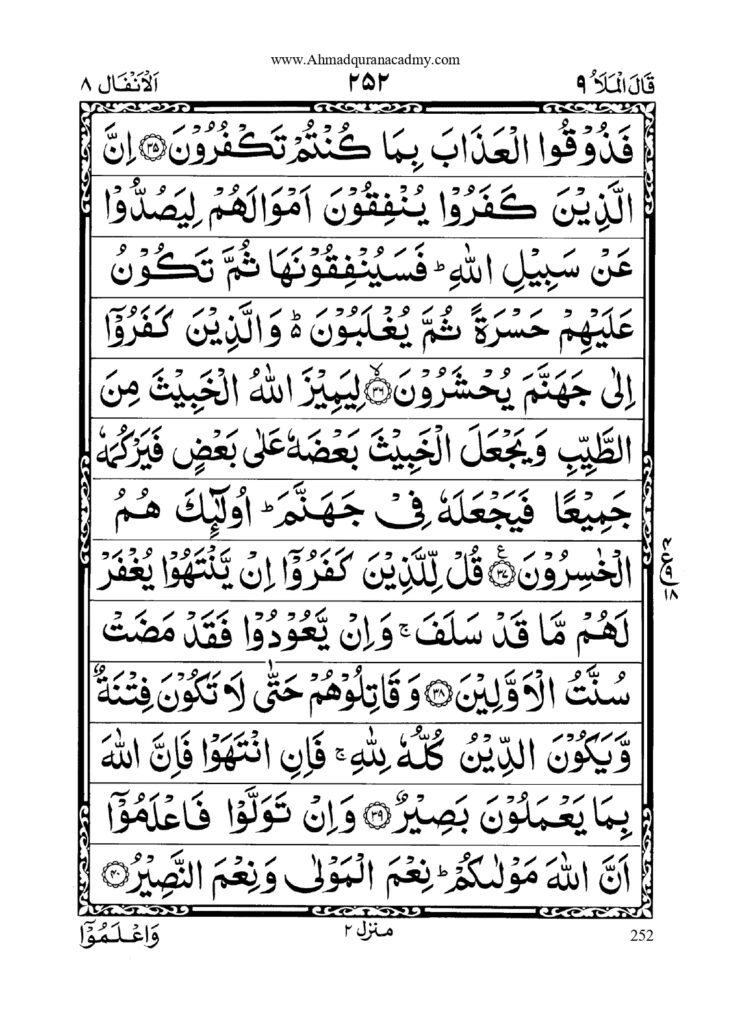 www.Ahmadquranacadmy.com
قَالَ الْمَلَاُ ٩
٢٥٢
اَلْاَنْفَال ٨
فَذُوْقُوا الْعَذَابَ بِمَا كُنْتُمْ تَكْفُرُوْنَ ﴿۳۵﴾ اِنَّ
الَّذِيْنَ كَفَرُوْا يُنْفِقُوْنَ اَمْوَالَهُمْ لِيَصُدُّوْا
عَنْ سَبِيْلِ اللّٰهِ ؕ فَسَيُنْفِقُوْنَهَا ثُمَّ تَكُوْنُ
عَلَيْهِمْ حَسْرَةً ثُمَّ يُغْلَبُوْنَ ۬ؕ وَالَّذِيْنَ كَفَرُوْۤا
اِلٰى جَهَنَّمَ يُحْشَرُوْنَ ۙ﴿۳۶﴾ لِيَمِيْزَ اللّٰهُ الْخَبِيْثَ مِنَ
الطَّيِّبِ وَيَجْعَلَ الْخَبِيْثَ بَعْضَهٗ عَلٰى بَعْضٍ فَيَرْكُمَهٗ
جَمِيْعًا فَيَجْعَلَهٗ فِيْ جَهَنَّمَ ؕ اُولٰٓئِكَ هُمُ
الْخٰسِرُوْنَ ﴿۳۷﴾ ع قُلْ لِّلَّذِيْنَ كَفَرُوْۤا اِنْ يَّنْتَهُوْا يُغْفَرْ
لَهُمْ مَّا قَدْ سَلَفَ ۚ وَاِنْ يَّعُوْدُوْا فَقَدْ مَضَتْ
سُنَّتُ الْاَوَّلِيْنَ ﴿۳۸﴾ وَقَاتِلُوْهُمْ حَتّٰى لَا تَكُوْنَ فِتْنَةٌ
وَّيَكُوْنَ الدِّيْنُ كُلُّهٗ لِلّٰهِ ۚ فَاِنِ انْتَهَوْا فَاِنَّ اللّٰهَ
بِمَا يَعْمَلُوْنَ بَصِيْرٌ ﴿۳۹﴾ وَاِنْ تَوَلَّوْا فَاعْلَمُوْۤا
اَنَّ اللّٰهَ مَوْلٰىكُمْ ؕ نِعْمَ الْمَوْلٰى وَنِعْمَ النَّصِيْرُ ﴿۴۰﴾
ع ۴ ۹ ۱۸
252
منزل ٢
وَاعْلَمُوْۤا